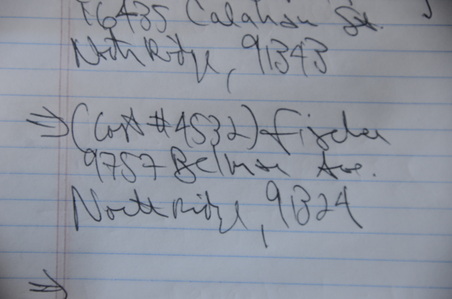 16435 Calahan St.
Northridge, 91343
⇒ (Cust #4532) Fischer
9757 Belmar Ave.
Northridge, 91324
⇒